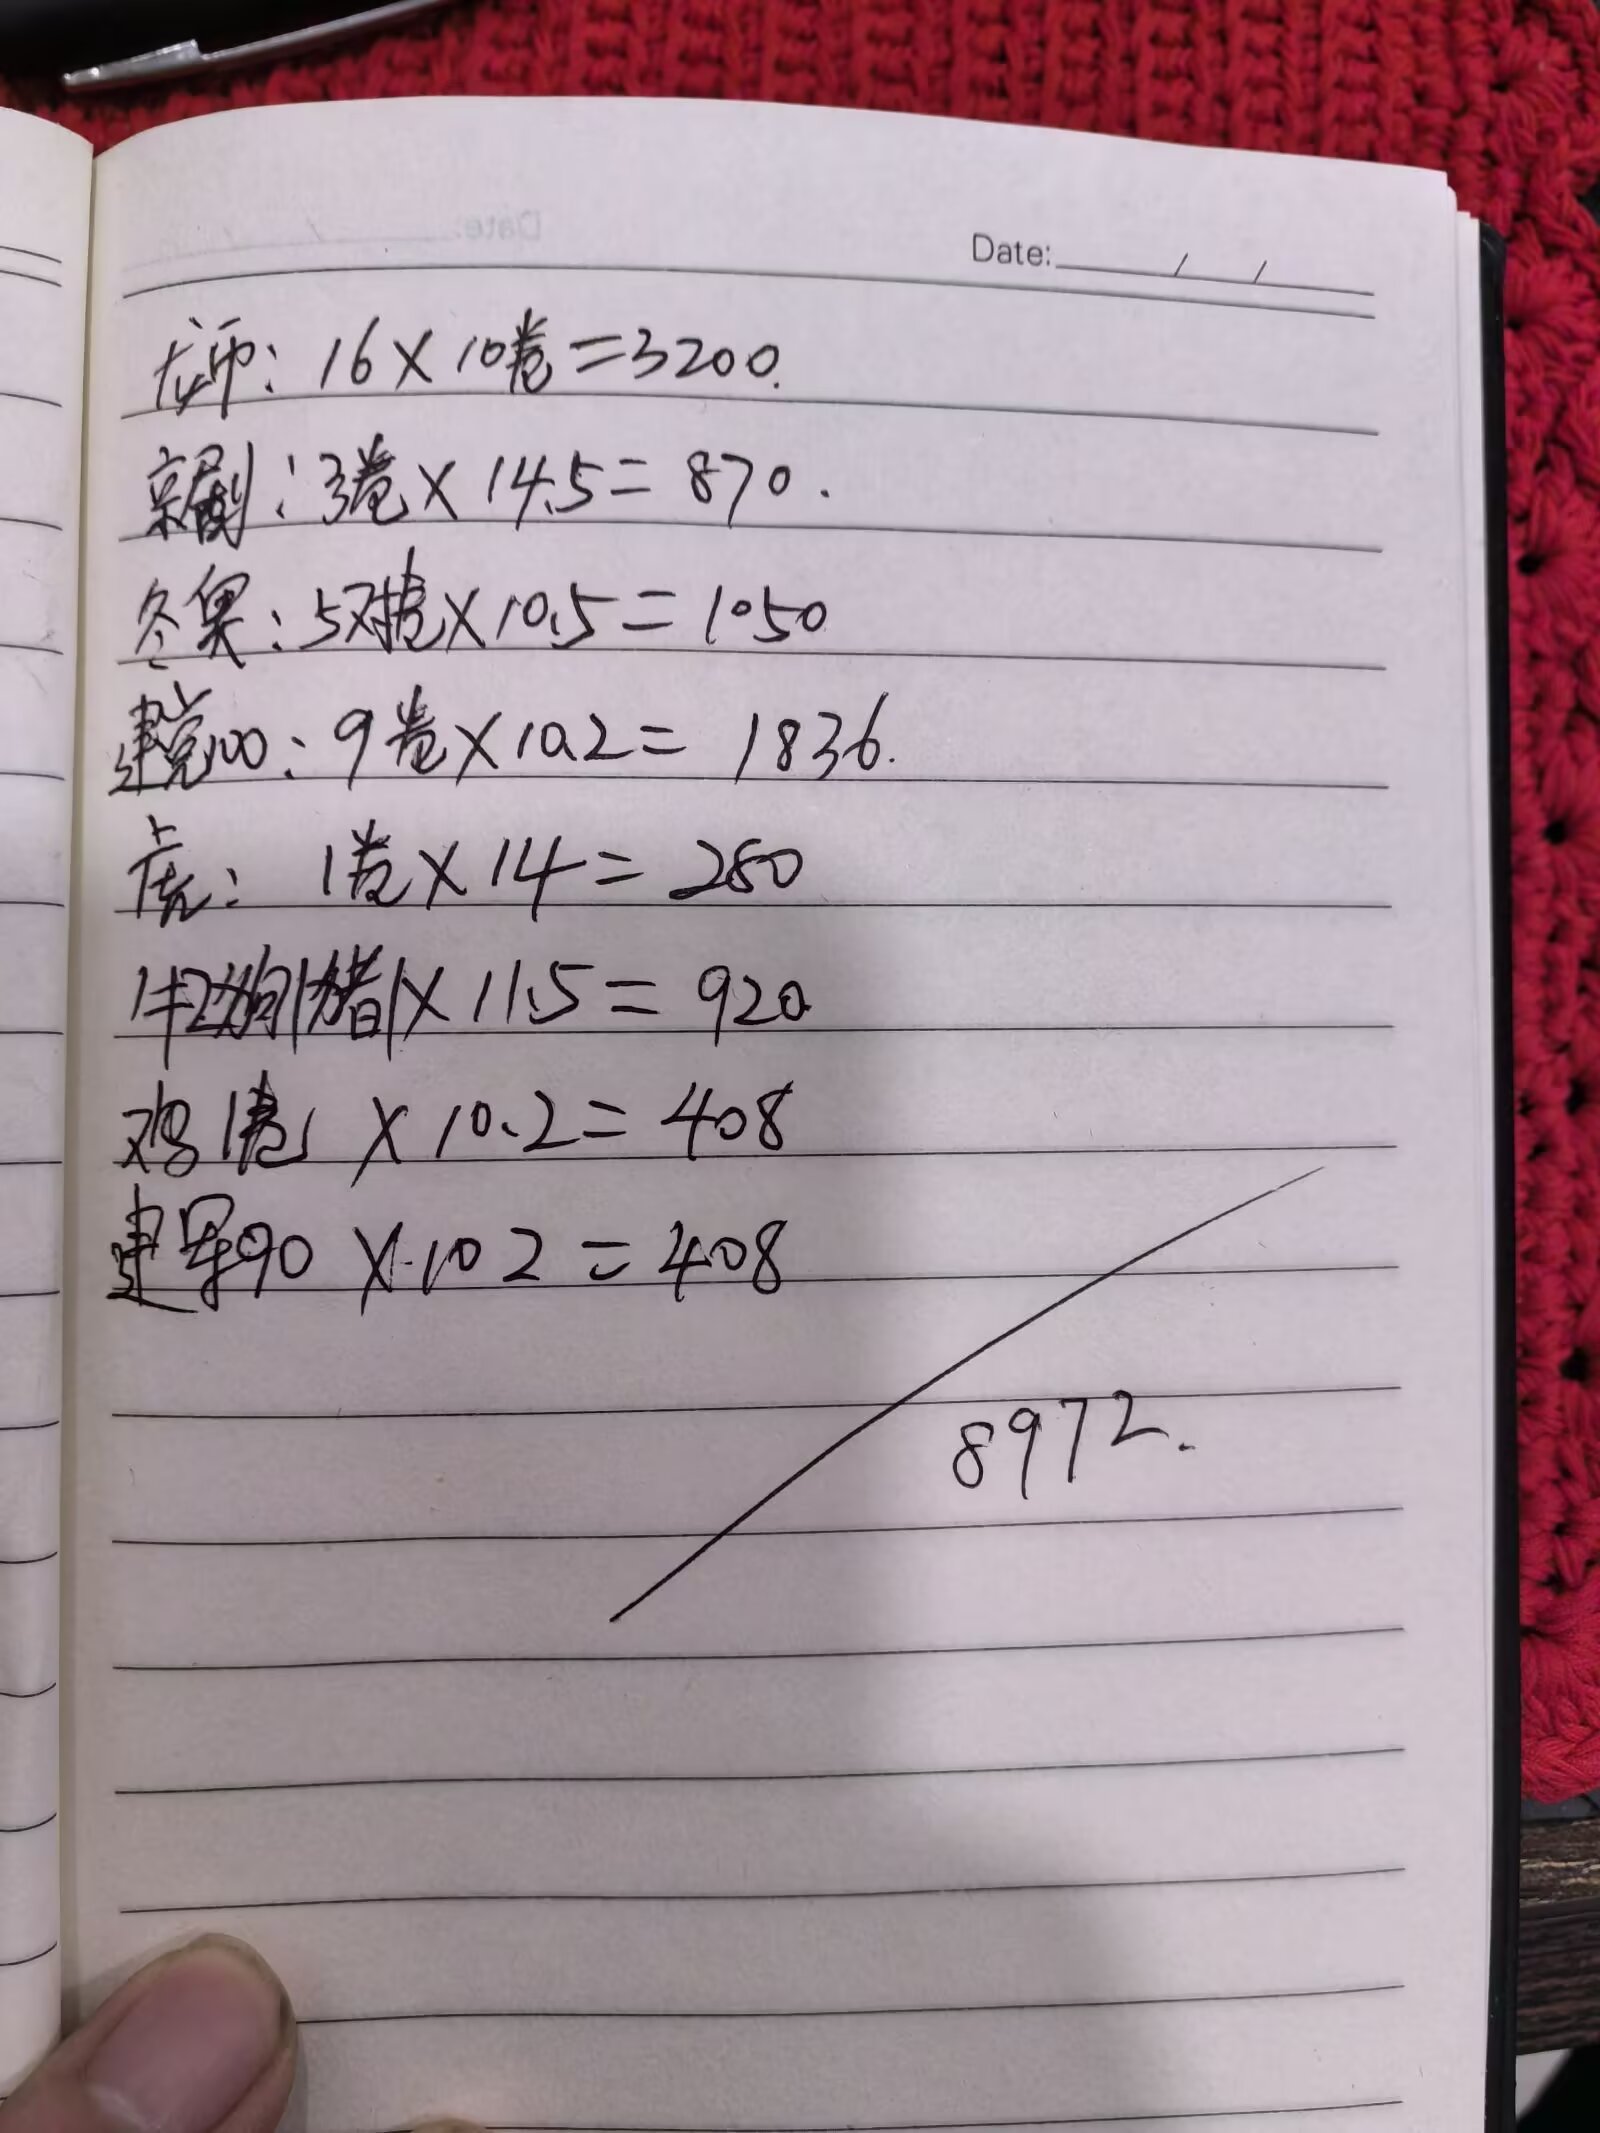 Date: / /
龙币: 16×10卷=3200.
京剧: 3卷×14.5=870.
冬奥: 5对卷×10.5=1050
建党100: 9卷×10.2=1836.
虎: 1卷×14=280
牛2狗1猪1×11.5=920
鸡1卷 ×10.2=408
建军90 ×10.2=408
8972.